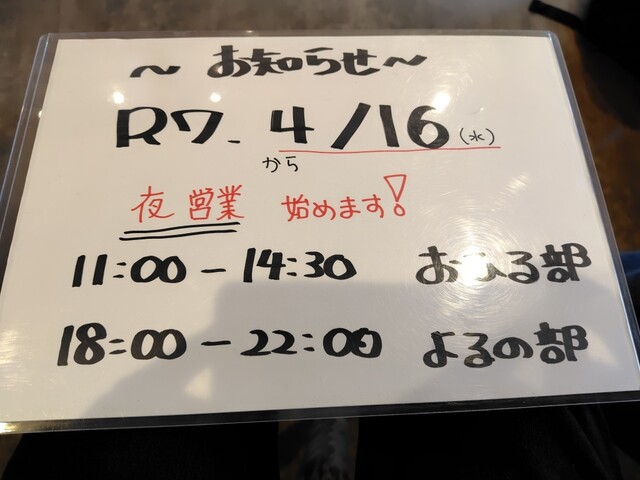 ～ お知らせ～
R7. 4/16(水)
から
夜営業 始めます!
11:00 - 14:30 おひる部
18:00 - 22:00 よるの部